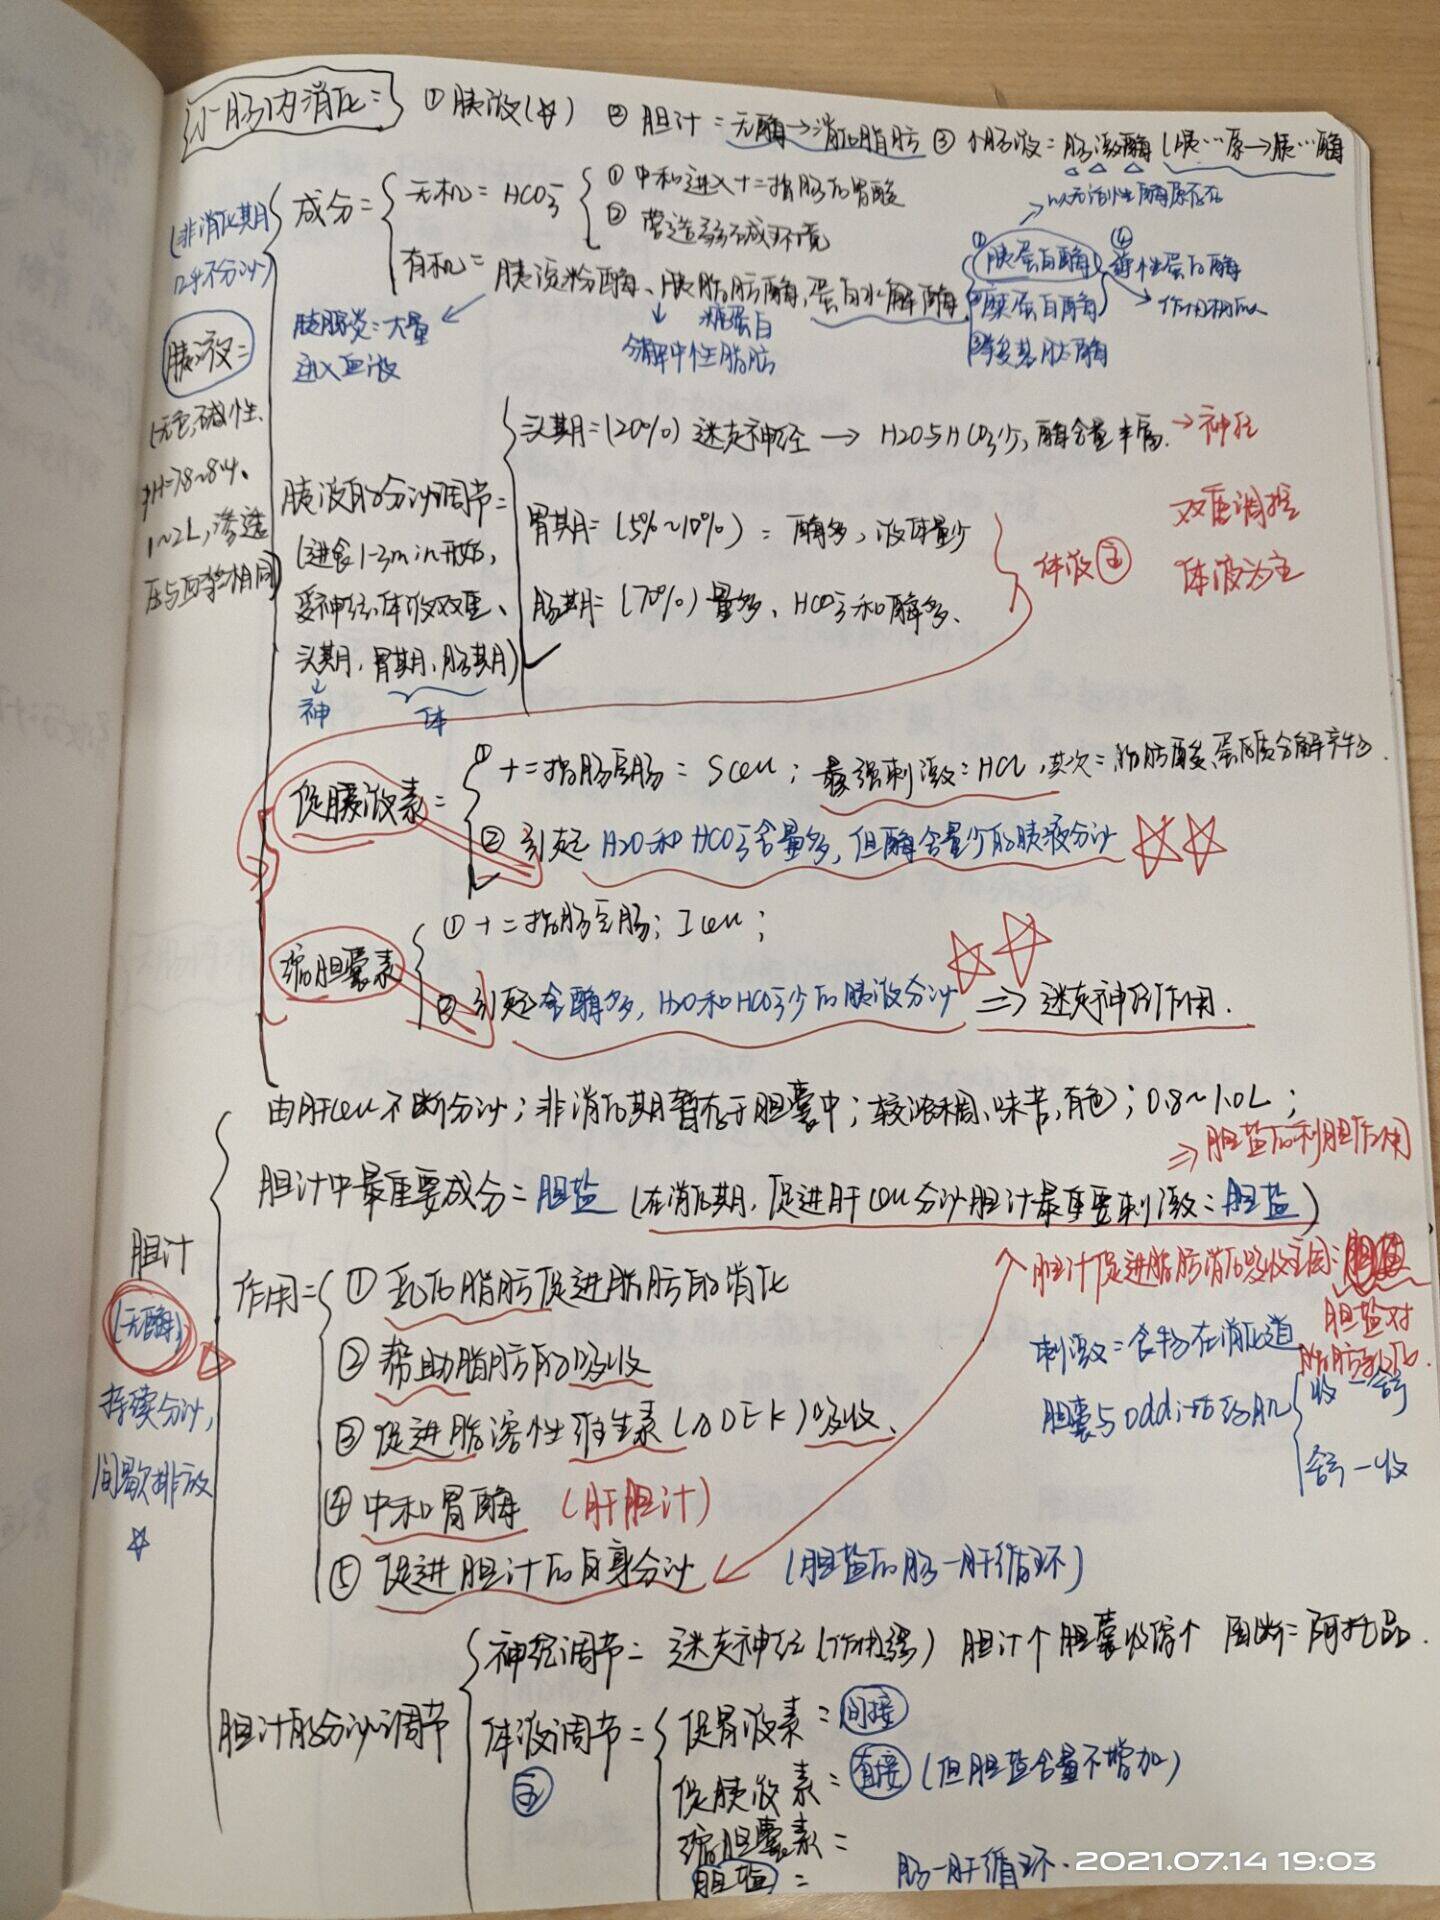 小肠内消化: ①胰液(☆) ②胆汁=无酶→消化脂肪 ③小肠液=肠激酶(胰…原→胰…酶
→以无活性酶原存在
(非消化期几乎不分泌)
成分= 无机= HCO₃⁻ ①中和进入十二指肠的胃酸
②营造弱碱环境
有机= 胰淀粉酶、胰脂肪酶,蛋白水解酶 ①胰蛋白酶 ④
②糜蛋白酶
胰腺炎=大量进入血液
分解中性脂肪
作用相似
胰液=
(无色,碱性、
pH=7.8~8.4、
1~2L,渗透
压与血浆相同)
胰液的分泌调节=
(进食1-3min开始,
受神经、体液双重、
头期,胃期,肠期)
神 体
头期=(20%) 迷走神经→H2O与HCO₃⁻少,酶含量丰富.→神经
胃期=(5%~10%)=酶多,液体量少
肠期=(70%)量多、HCO₃⁻和酶多、
体液主
双重调控
体液为主
促胰液素= ①十二指肠空肠=Scell;最强刺激=HCl,其次=脂肪酸,蛋白质分解产物.
②引起H2O和HCO₃⁻含量多,但酶含量少的胰液分泌
缩胆囊素 ①十二指肠空肠;Icell;
②引起含酶多,H2O和HCO₃⁻少的胰液分泌⇒迷走神经作用.
胆汁
(无酶)
持续分泌,
间歇排放
☆
由肝cell不断分泌;非消化期暂存于胆囊中;较浓稠、味苦,有色;0.8~1.0L;
⇒胆盐的利胆作用
胆汁中最重要成分=胆盐(在消化期,促进肝cell分泌胆汁最重要刺激=胆盐)
作用= ①乳化脂肪促进脂肪的消化
②帮助脂肪的吸收
③促进脂溶性维生素(ADEK)吸收、
④中和胃酶 (肝胆汁)
⑤促进胆汁的自身分泌 (胆盐的肠-肝循环)
胆汁促进脂肪消化吸收主因:
胆盐对
刺激=食物在消化道
胆囊与Oddi括约肌 收-舒
舒-收
胆汁的分泌调节
神经调节=迷走神经(作用弱) 胆汁↑胆囊收缩↑ 阻断=阿托品.
体液调节= 促胃液素=间接
主
促胰液素=直接(但胆盐含量不增加)
缩胆囊素=
胆盐= 肠-肝循环.
2021.07.14 19:03